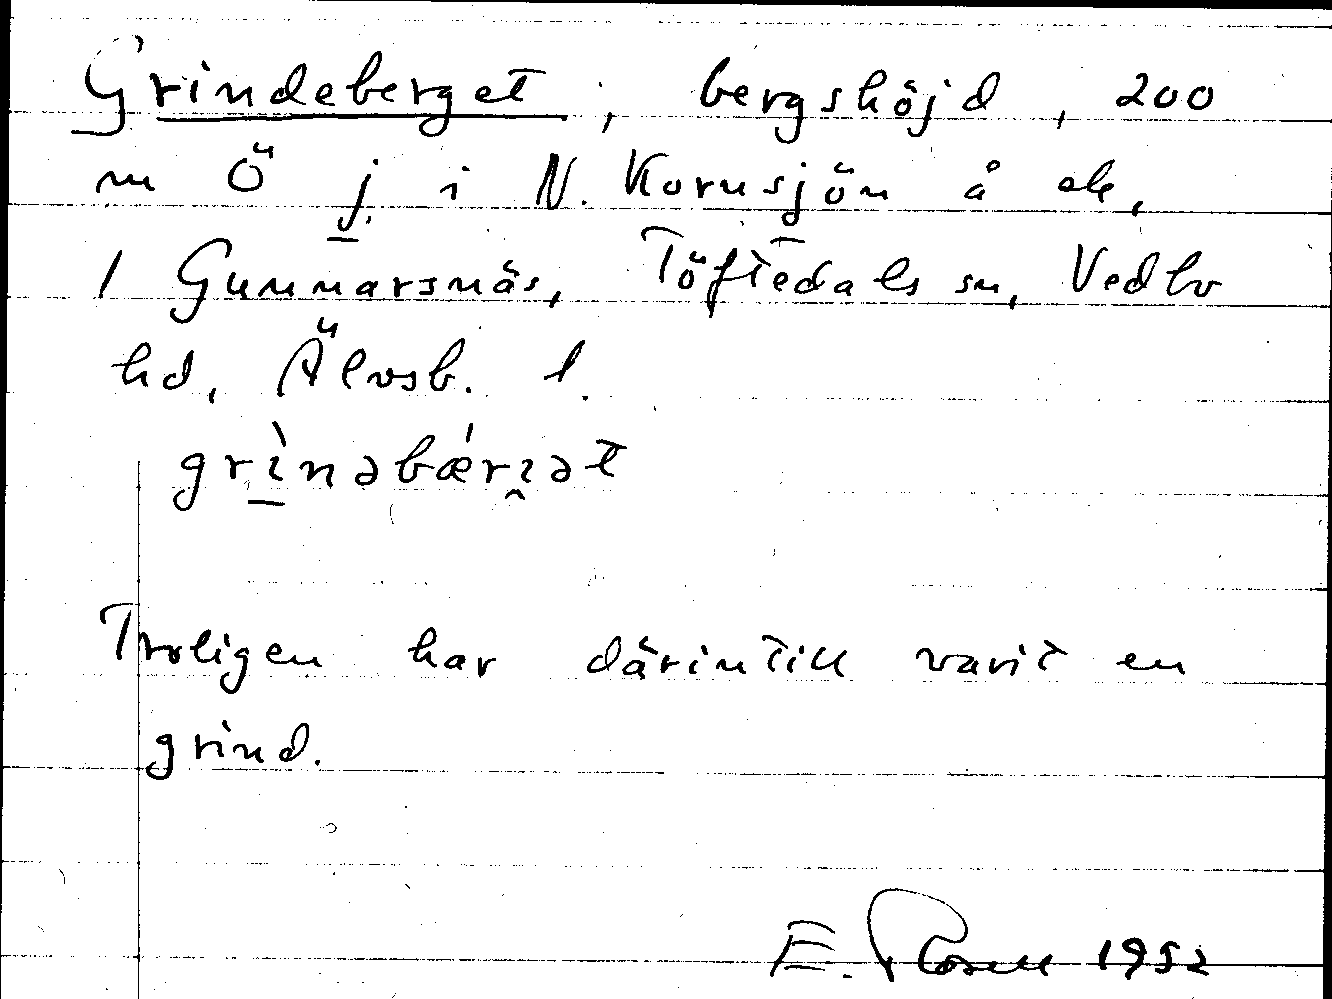 Grindeberget, bergshöjd, 200
m Ö j. i N. Kornsjön å ek,
1 Gunnarsnäs, Töftedals sn, Vedbo
hd, Älvsb. l.
grı̀nəbǽrı̯ət
Troligen har därintill varit en
grind.
E. Rosell 1952